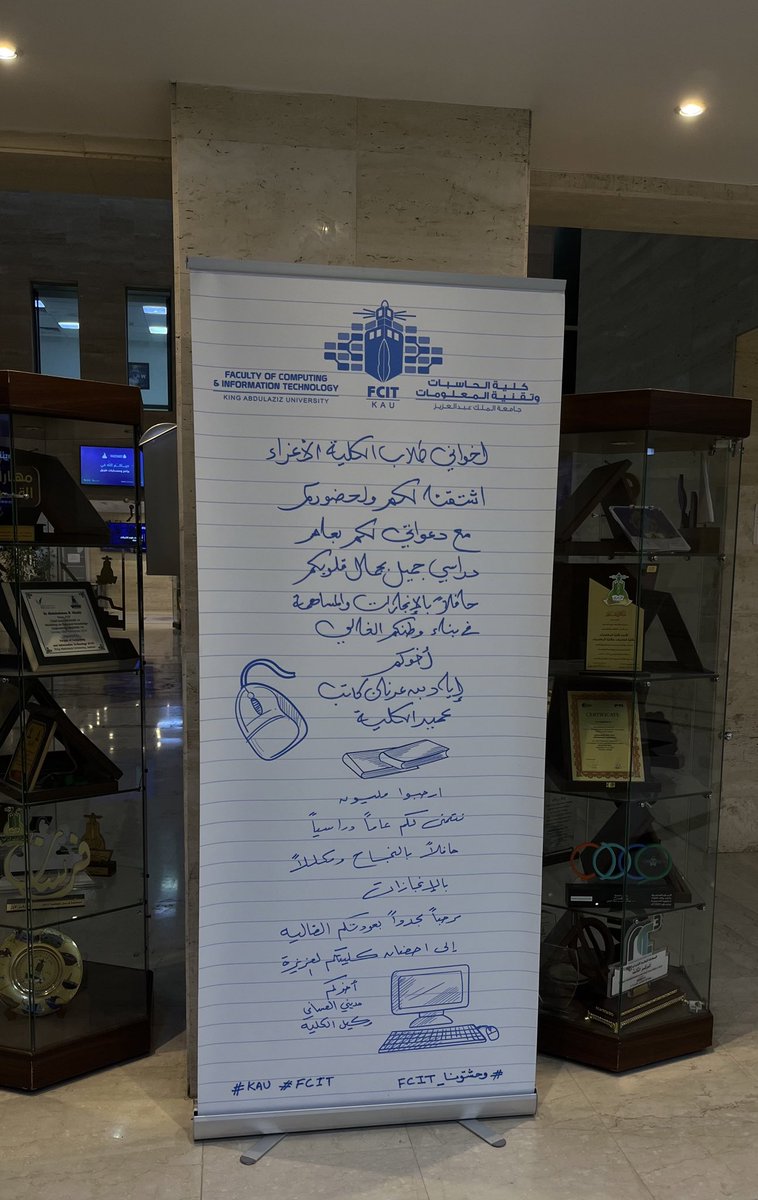 FACULTY OF COMPUTING
& INFORMATION TECHNOLOGY
KING ABDULAZIZ UNIVERSITY
FCIT
KAU
كلية الحاسبات
وتقنية المعلومات
جامعة الملك عبدالعزيز
اخواني طلاب الكلية الأعزاء
اشتقنا لكم ولحضوركم
مع دعواتي لكم بعام
دراسي جميل بجمال قلوبكم
حافلاً بالإنجازات والمساهمة
في بناء وطنكم الغالي
أخوكم
إياد بن عدنان كاتب
عميد الكلية
ارحبوا مليون
نتمنى لكم عاماً دراسياً
حافلاً بالنجاح ومكللاً
بالإنجازات
مرحباً مجدداً بعودتكم الغالية
إلى احضان كليتكم العزيزة
أخوكم
مديني العسلي
وكيل الكلية
#KAU #FCIT
#وحشتونا_FCIT
CERTIFICATE